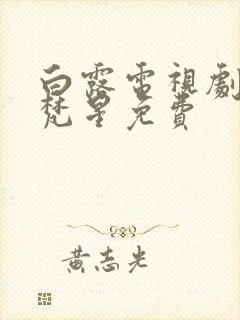 白露電視劇
梵星免費
黃志光